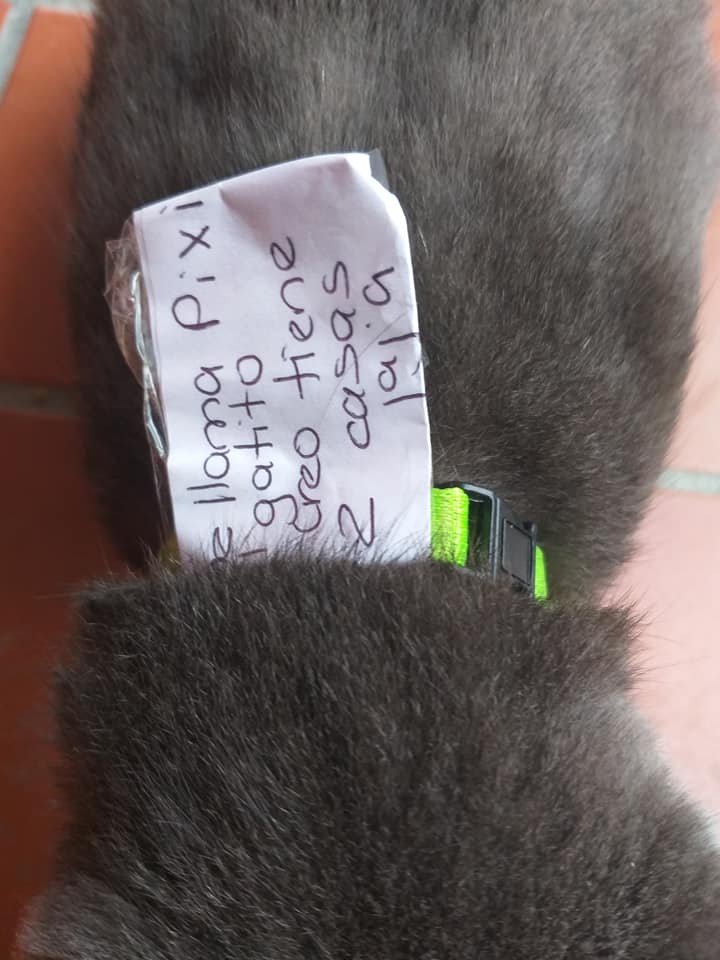 e llama Pixi
gatito
creo tiene
2 casas
jaja